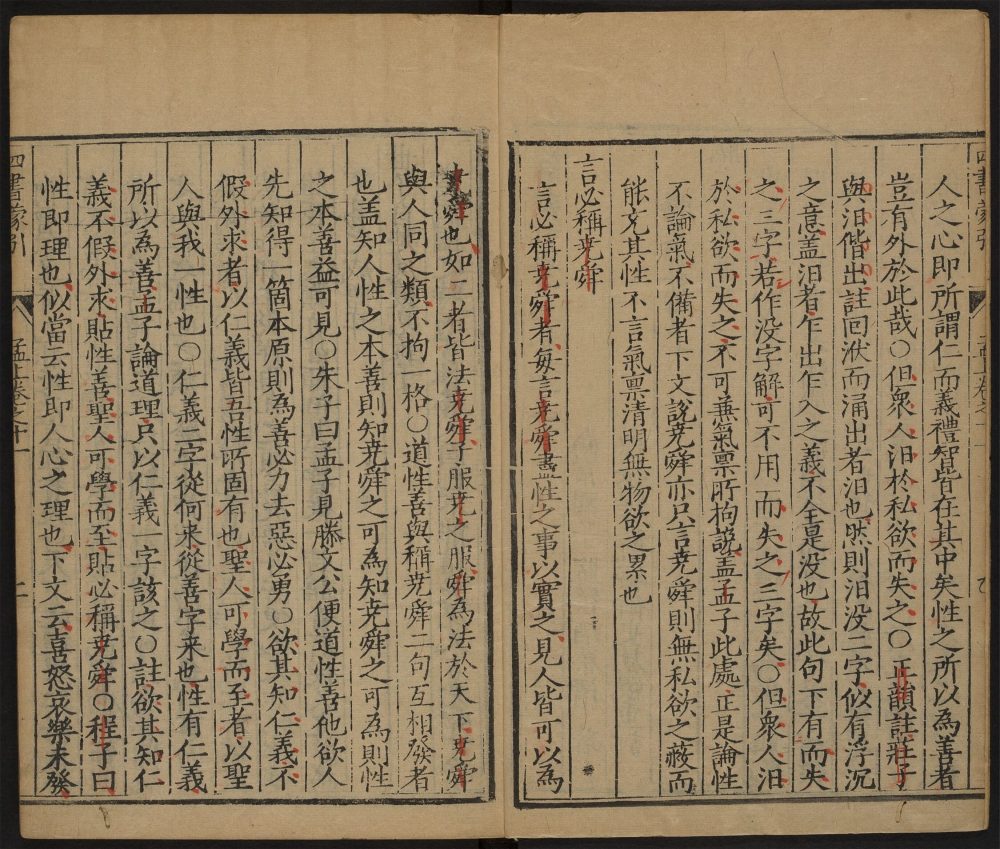 人之心即所謂仁而義禮智皆在其中矣性之所以為善者
豈有外於此哉○但衆人汨於私欲而失之○正韻註莊子
與汨偕出註回洑而涌出者汨也然則汨没二字似有浮沉
之意盖汨者乍出乍入之義不全是没也故此句下有而失
之三字若作没字解可不用而失之三字矣○但衆人汨
於私欲而失之不可兼氣禀所拘說盖孟子此處正是論性
不論氣不備者下文說尭舜亦只言尭舜則無私欲之蔽而
能充其性不言氣禀清明無物欲之累也
言必稱尭舜
言必稱尭舜者每言尭舜盡性之事以實之見人皆可以為
尭舜也如二者皆法尭舜子服尭之服舜為法於天下尭舜
與人同之類不拘一格○道性善與稱尭舜二句互相發者
也盖知人性之本善則知尭舜之可為知尭舜之可為則性
之本善益可見○朱子曰孟子見滕文公便道性善他欲人
先知得一箇本原則為善必力去惡必勇○欲其知仁義不
假外求者以仁義皆吾性所固有也聖人可學而至者以聖
人與我一性也○仁義二字從何来從善字来也性有仁義
所以為善孟子論道理只以仁義一字該之○註欲其知仁
義不假外求貼性善聖人可學而至貼必稱尭舜○程子曰
性即理也似當云性即人心之理也下文云喜怒哀樂未發
四書蒙引
孟上卷之十一
二